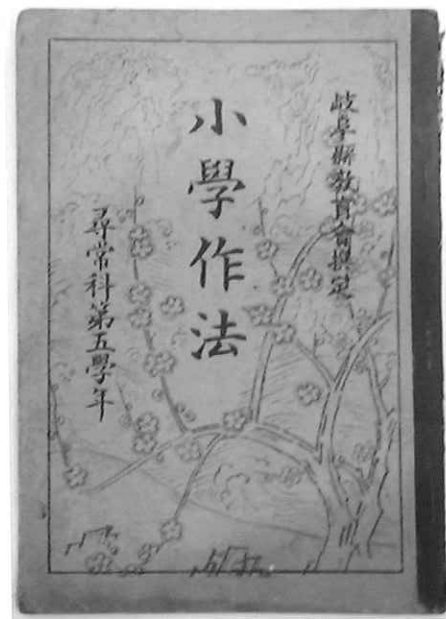 岐阜縣敎育會撰定
小學作法
尋常科第五學年